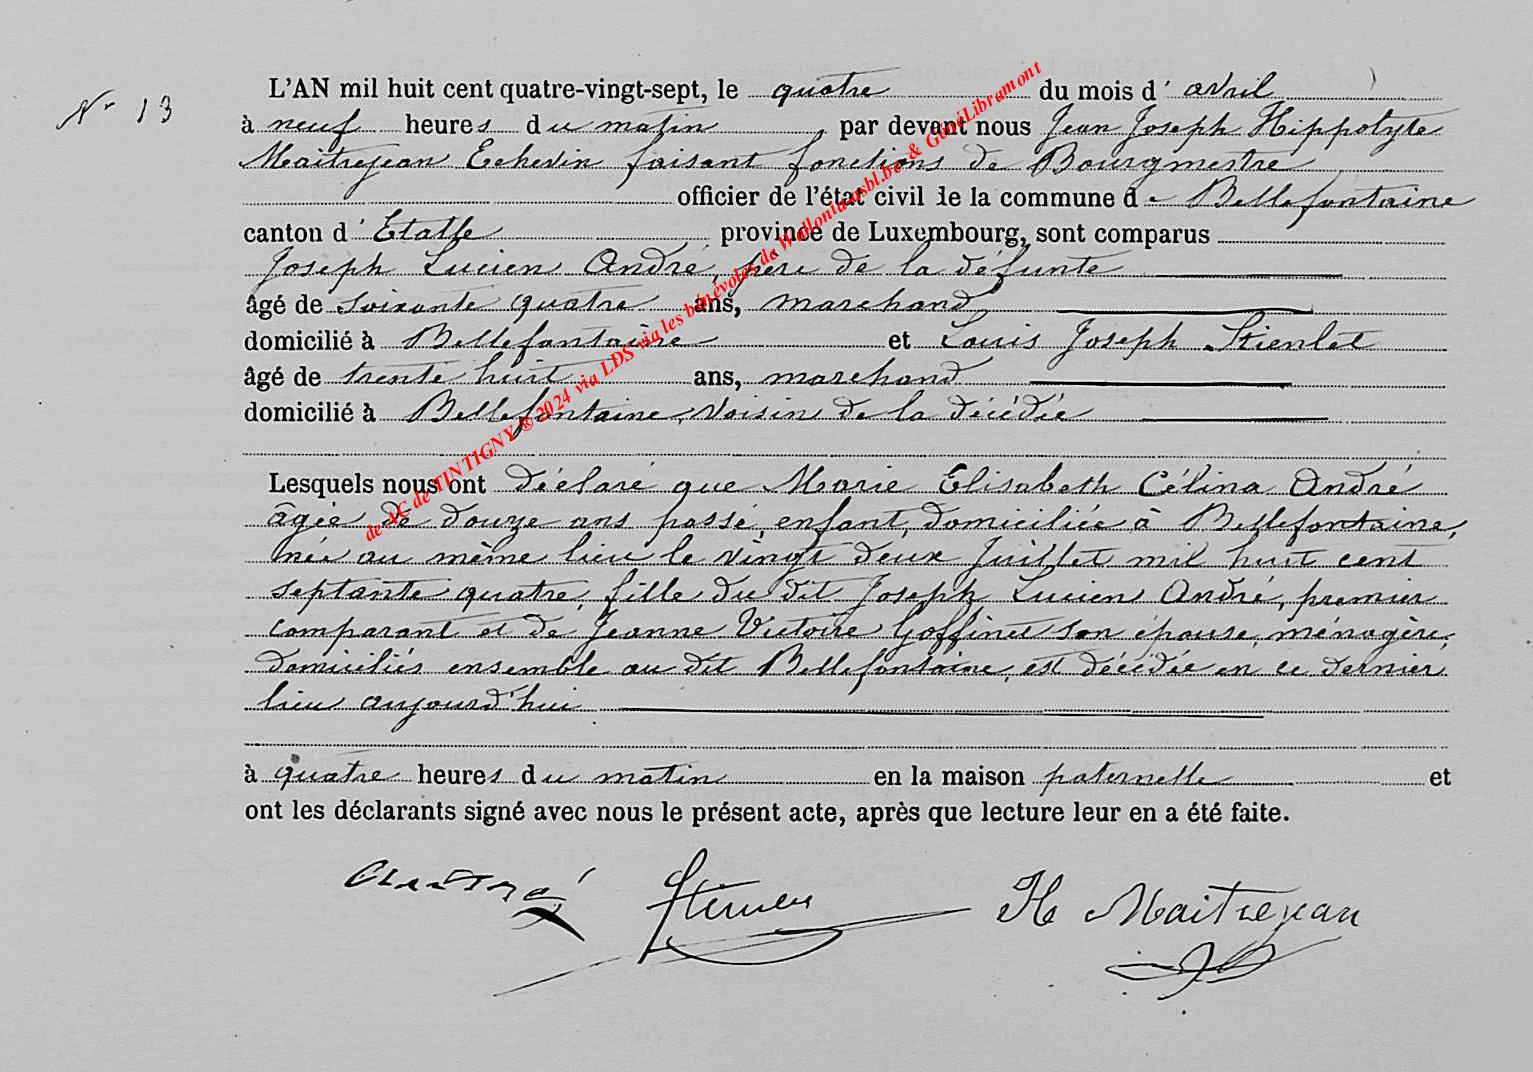 Nr 13
L'AN mil huit cent quatre-vingt-sept, le quatre du mois d'avril
à neuf heures du matin, par devant nous Jean Joseph Hippolyte
Maitrejean Echevin faisant fonctions de Bourgmestre
officier de l'état civil de la commune de Bellefontaine
canton d'Etalle province de Luxembourg, sont comparus
Joseph Lucien André, père de la défunte
âgé de soixante quatre ans, marchand
domicilié à Bellefontaine et Louis Joseph Stienlet
âgé de trente huit ans, marchand
domicilié à Bellefontaine, voisin de la décédée
Lesquels nous ont déclaré que Marie Elisabeth Célina André
agée de douze ans passé, enfant, domiciliée à Bellefontaine,
née au même lieu le vingt deux Juillet mil huit cent
septante quatre, fille du dit Joseph Lucien André, premier
comparant et de Jeanne Victoire Goffinet son épouse, ménagère,
domiciliés ensemble au dit Bellefontaine, est décédée en ce dernier
lieu aujourd'hui
à quatre heures du matin en la maison paternelle et
ont les déclarants signé avec nous le présent acte, après que lecture leur en a été faite.
H Maitrejean
de AC de TINTIGNY ®2024 via LDS via les bénévoles de Wallonia asbl.be & GénéLibramont